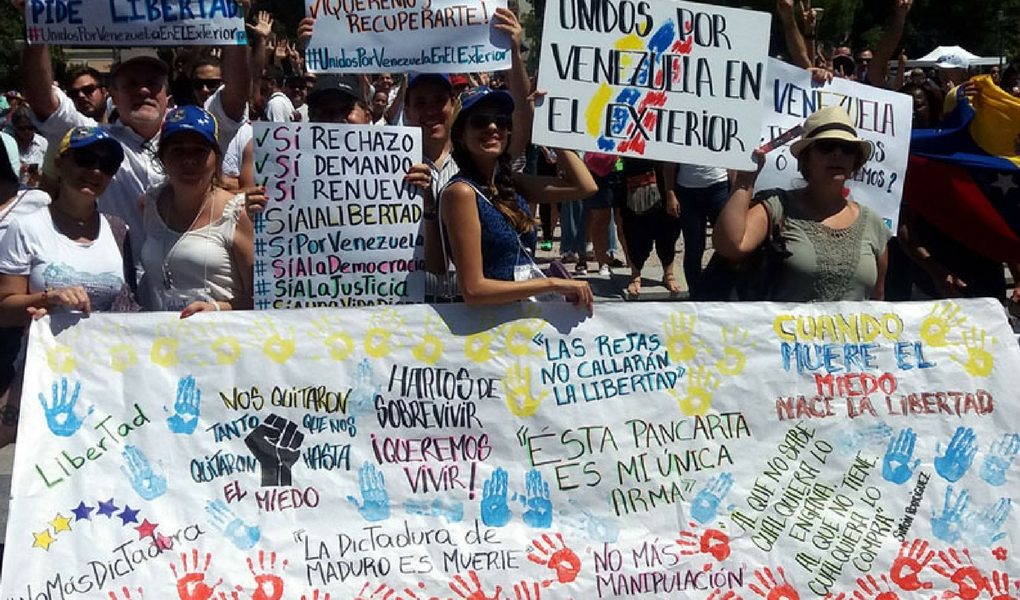 PIDE LIBERTAD
#UnidosPorVenezuelaEnElExterior
¡QUEREMOS
RECUPERARTE!
#UnidosPorVenezuelaEnELExterior
UNIDOS POR
VENEZUELA EN
EL EXTERIOR
VENEZUELA
✓SÍ RECHAZO
✓SÍ DEMANDO
✓SÍ RENUEVO
#SÍALALIBERTAD
#SÍPorVenezuela
#SÍALaDemocracia
#SÍALaJusticia
LiberTad
NOS QUITARON
TANTO QUE NOS
QUITARON HASTA
EL MIEDO
HARTOS DE
SOBREVIVIR
¡QUEREMOS
VIVIR!
"LAS REJAS
NO CALLARÁN
LA LIBERTAD"
CUANDO
MUERE EL
MIEDO
NACE LA LIBERTAD
"ÉSTA PANCARTA
ES MI ÚNICA
ARMA"
AL QUE NO SABE
CUALQUIERA LO
ENGAÑA.
AL QUE NO TIENE,
CUALQUIERA LO
COMPRA"
SIMÓN RODRÍGUEZ
NoMásDicTadura
"LA DICTADURA DE
MADURO ES MUERTE"
NO MÁS
MANIPULACIÓN